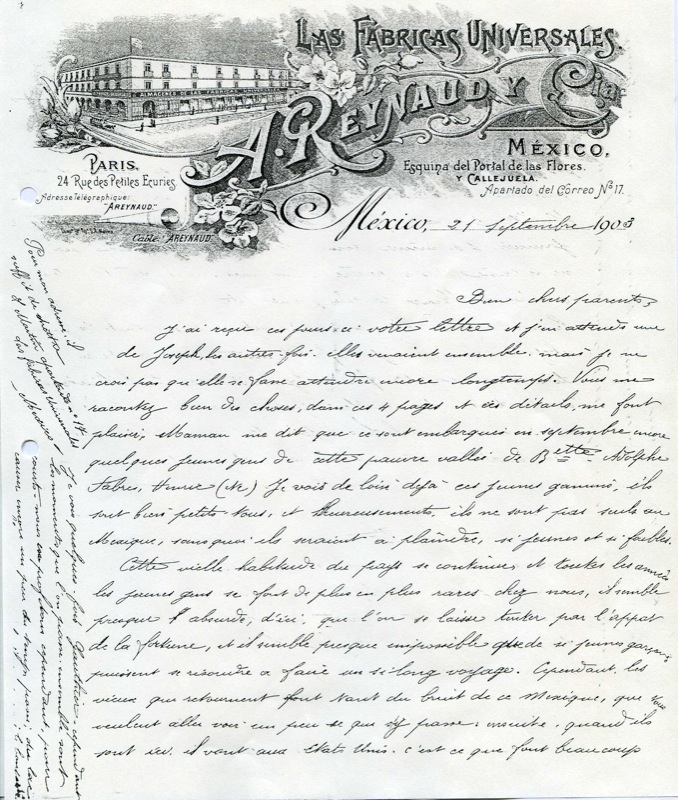 LAS FÁBRICAS UNIVERSALES.
ALMACENES DE LAS FÁBRICAS
A. REYNAUD Y Cia
MÉXICO,
Esquina del Portal de las Flores.
Y CALLEJUELA.
Apartado del Correo No 17.
PARIS,
24 Rue des Petites Ecuries
Adresse Télégraphique:
"AREYNAUD."
Cable "AREYNAUD"
México, 21 Septembre 1903
Bien chers parents,
J'ai reçu ces jours-ci votre lettre et j'en attends une
de Joseph, les autres fois elles venaient ensemble mais je ne
crois pas qu'elle se fasse attendre encore longtemps. Vous me
racontez bien des choses, dans ces 4 pages et ces détails, me font
plaisir, Maman me dit que ce sont embarqués en septembre encore
quelques jeunes gens de cette pauvre vallée de Bette Adolphe
Fabres, (Ne) Je vois de loin déjà ces jeunes gamins, ils
sont bien petits tous, et heureusement, ils ne sont pas seuls au
Mexique, sans quoi ils seraient à plaindre, si jeunes et si faibles.
Cette vielle habitude du pays se continue, et toutes les années
les jeunes gens se font de plus en plus rares chez nous, il semble
presque l'absurde, d'ici, que l'on se laisse tenter par l'appât
de la fortune, et il semble presque impossible que de si jeunes garçons
puissent se résoudre a faire un si long voyage. Cependant, les
vieux qui retournent font tant du bruit de ce Mexique, que tous
veulent aller voir un peu ce que s'y passe; ensuite, quand ils
sont ici il vont aux Etats Unis. c'est ce que font beaucoup
Pour mon adresse, il
suffit de mettre
Mexico
Je vois quelques fois Gauthier, cependant
les moments que l'on passe ensemble sont
courts nous en profitons cependant pour
causer un peu du temps passé,